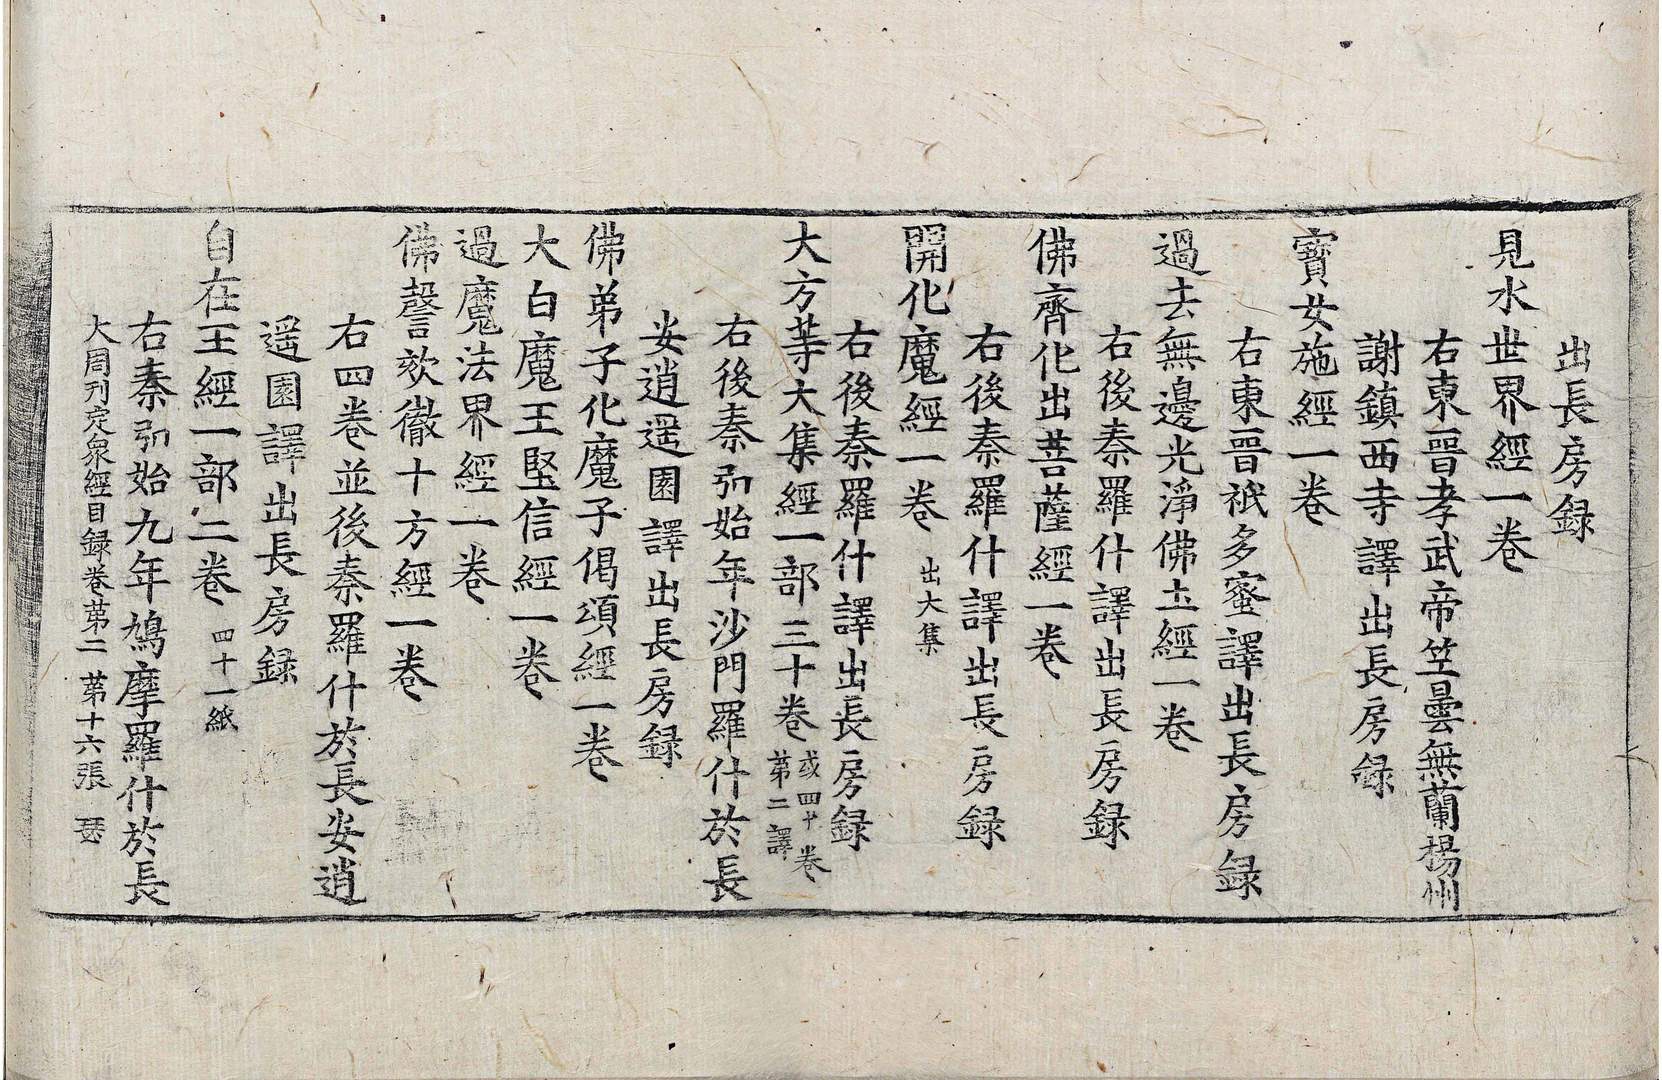 出長房録
見水世界經一卷
右東晉孝武帝竺曇無蘭楊州
謝鎮西寺譯出長房録
寶女施經一卷
右東晉祇多蜜譯出長房録
過去無邊光淨佛土經一卷
右後秦羅什譯出長房録
佛齊化出菩薩經一卷
右後秦羅什譯出長房録
開化魔經一卷 出大集
右後秦羅什譯出長房録
大方等大集經一部三十卷 或四十卷
第二譯
右後秦弘始年沙門羅什於長
安逍遥園譯出長房録
佛弟子化魔子偈頌經一卷
大白魔王堅信經一卷
過魔法界經一卷
佛謦欬徹十方經一卷
右四卷並後秦羅什於長安逍
遥園譯出長房録
自在王經一部二卷 四十一紙
右秦弘始九年鳩摩羅什於長
大周刊定衆經目録卷第二 第十六張